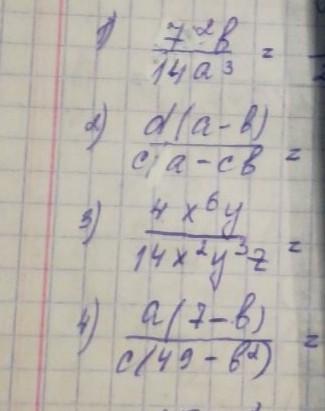 1) 7²b / 14a³ =
2) d(a-b) / ca-cb =
3) 4x⁶y / 14x²y³z =
4) a(7-b) / c(49-b²) =